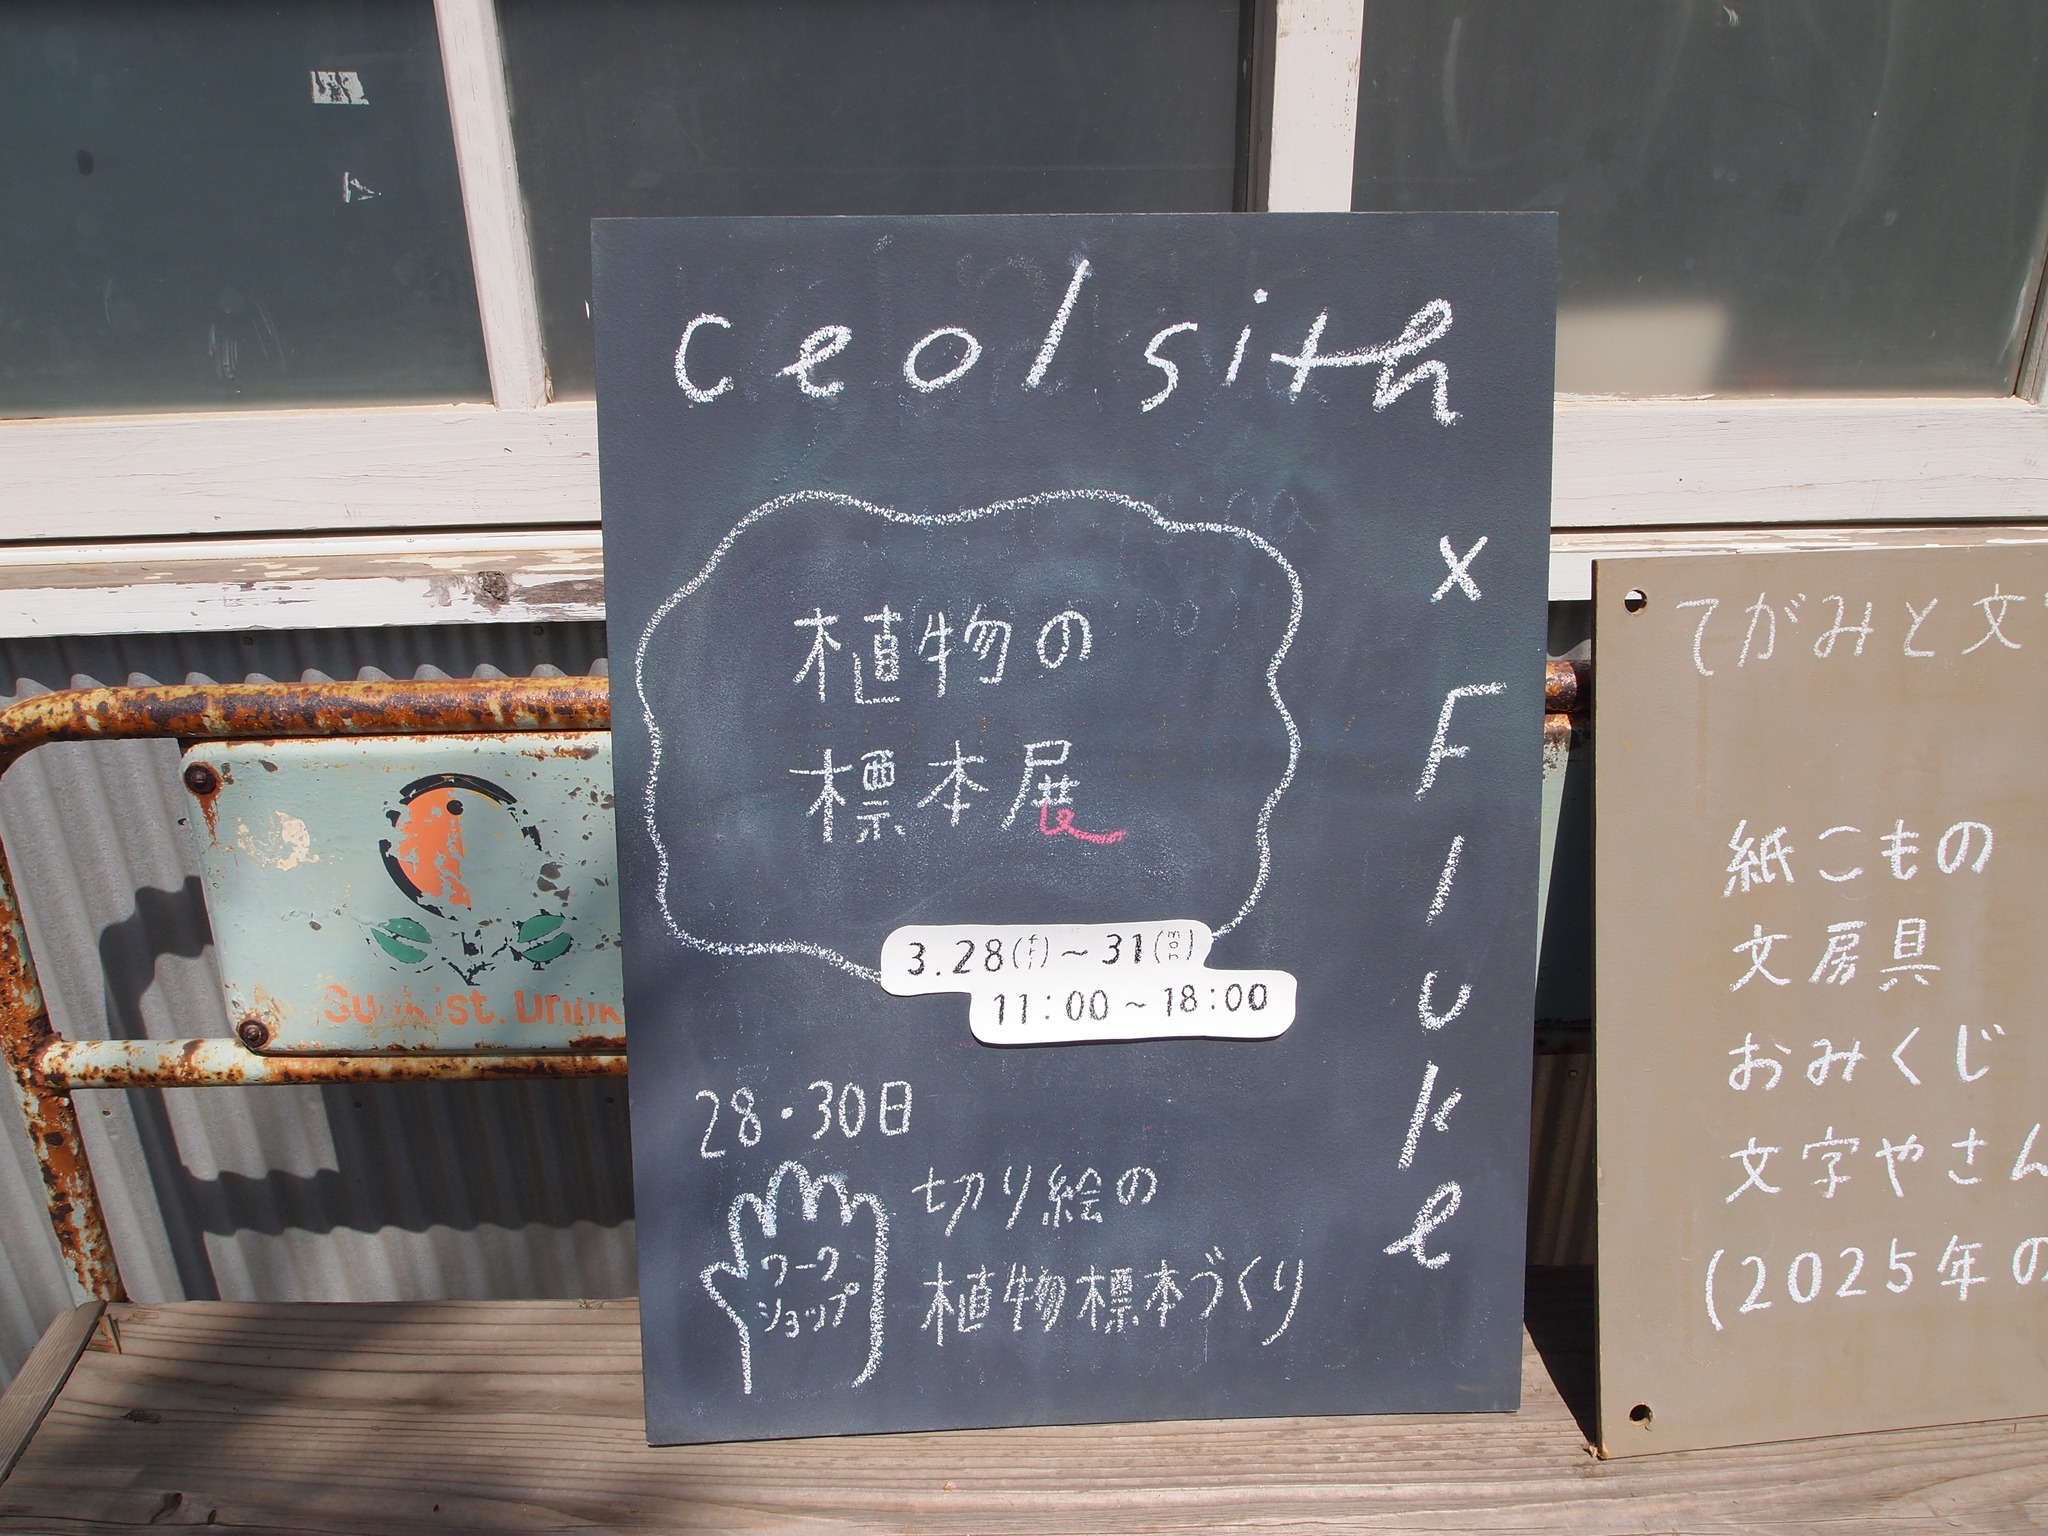 ceol sith
x Fluke
植物の
標本展
3.28(fri)~31(mon)
11:00~18:00
28・30日
ワーク
ショップ
切り絵の
植物標本づくり
Sunkist. Drink
てがみと文
紙こもの
文房具
おみくじ
文字やさん
(2025年の